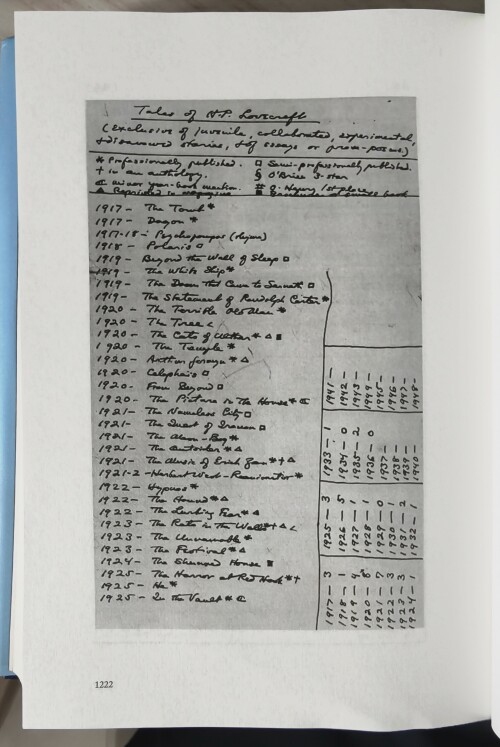 Tales of H.P. Lovecraft
(Exclusive of juvenile, collaborated, experimental,
& disavowed stories, & of essays or prose-poems)
* Professionally published. □ Semi-professionally published.
† in an anthology. § O'Brien 3-star
C minor year-book mention. # O. Henry 1st place
Δ Reprinted in magazine ■
1917 – The Tomb *
1917 – Dagon *
1917-18 – Psychopompos (rhyme)
1918 – Polaris □
1919 – Beyond the Wall of Sleep □
1919 – The White Ship *
1919 – The Doom that Came to Sarnath □
1919 – The Statement of Randolph Carter *
1920 – The Terrible Old Man *
1920 – The Tree <
1920 – The Cats of Ulthar * Δ ■
1920 – The Temple *
1920 – Arthur Jermyn * Δ
1920 – Celephais □
1920 – From Beyond □
1920 – The Picture in the House * C
1921 – The Nameless City □
1921 – The Quest of Iranon □
1921 – The Moon-Bog *
1921 – The Outsider * Δ
1921 – The Music of Erich Zann * † Δ
1921-2 – Herbert West – Reanimator *
1922 – Hypnos *
1922 – The Hound * Δ
1922 – The Lurking Fear * Δ
1923 – The Rats in the Walls * † Δ <
1923 – The Unnamable *
1923 – The Festival * Δ
1924 – The Shunned House ■
1925 – The Horror at Red Hook * †
1925 – He *
1925 – In the Vault * C
1917 – 3
1918 – 1
1919 – 4
1920 – 8
1921 – 7
1922 – 3
1923 – 3
1924 – 1
1925 – 3
1926 – 5
1927 – 1
1928 – 1
1929 – 0
1930 – 1
1931 – 2
1932 – 1
1933 – 1
1934 – 0
1935 – 2
1936 – 0
1937 –
1938 –
1939 –
1940 –
1941 –
1942 –
1943 –
1944 –
1945 –
1946 –
1947 –
1948 –
1222